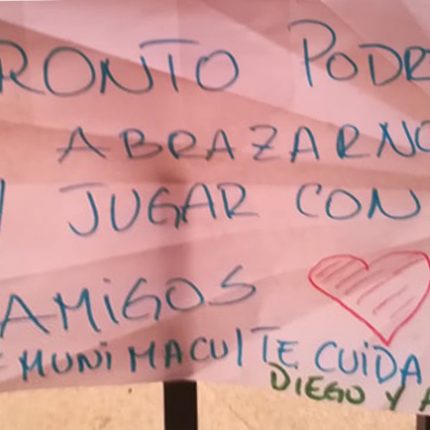 RONTO PODR
ABRAZARNO
Y JUGAR CON
AMiGOS
MUNI MACUL TE CUIDA
DIEGO Y A